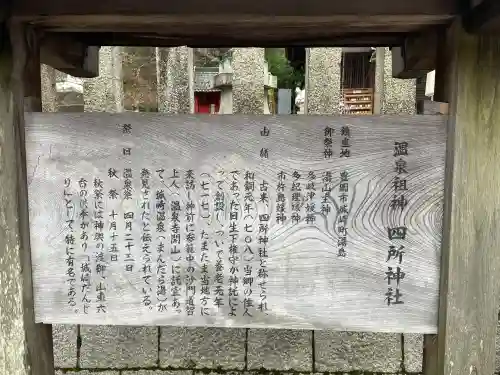 温泉祖神 四所神社
鎮座地 豊岡市城崎町湯島
御祭神 湯山主神
多岐津姫神
多紀理姫神
市杵島姫神
由緒 古来、四所神社と称せられ、
和銅元年(七〇八)当郷の住人
であった日生下権守が神託によ
って創祀し、ついで養老元年
(七一七)、たまたま当地方に
来訪し神前に参籠中の沙門道智
上人(温泉寺開山)に託宣あっ
て、城崎温泉(まんだら湯)が
発見されたと伝えられている。
祭日 温泉祭 四月二十三日
秋祭 十月十五日
秋祭には神輿の渡御、山車六
台の渡御があり、「城崎だんじ
り」として、特に有名である。